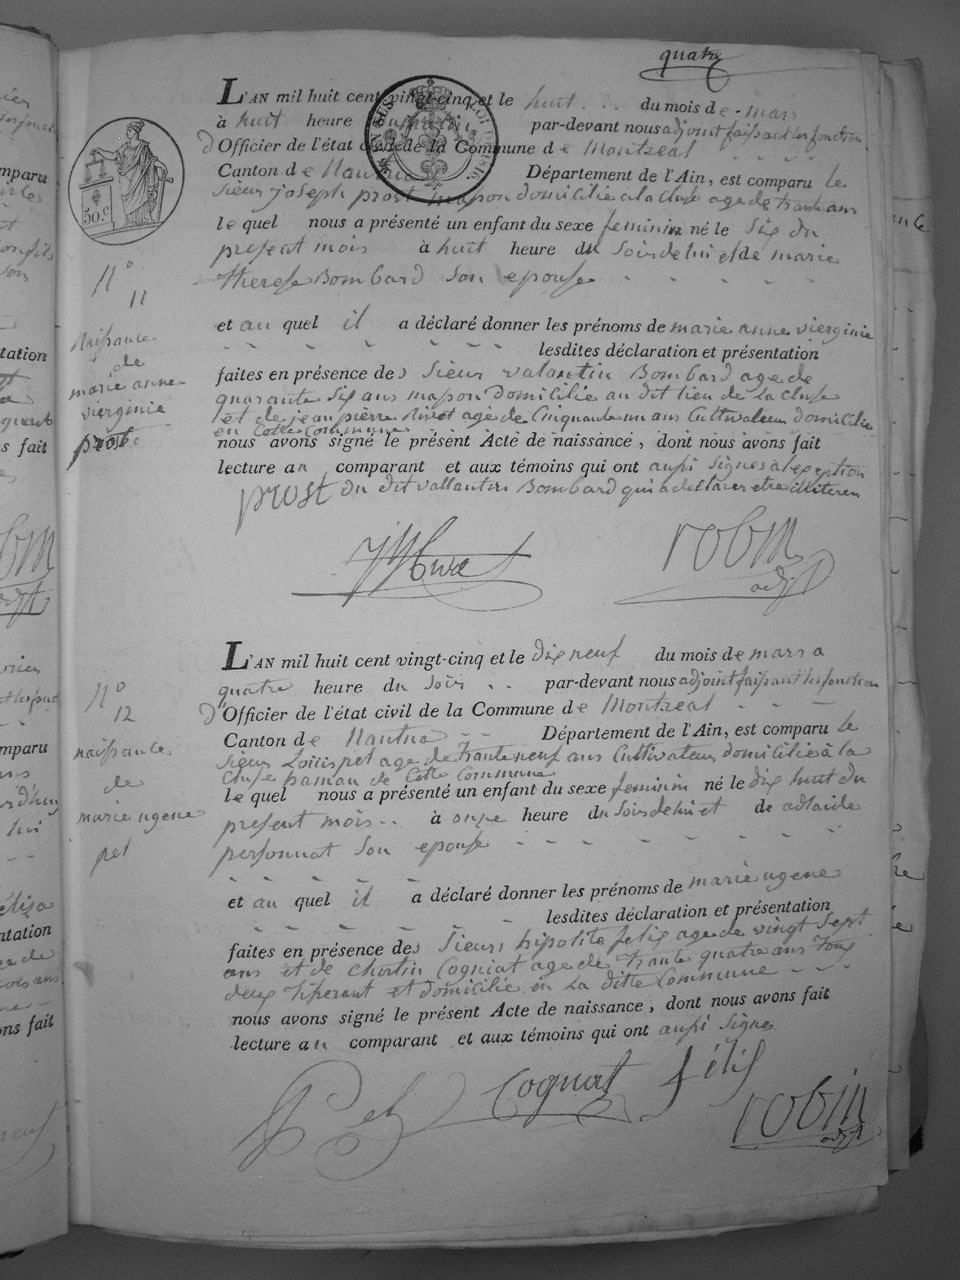 quatre
L'AN mil huit cent vingt-cinq et le huit . . . du mois de - mars
à huit heure du matin par-devant nous adjoint faissant les fonction
d'Officier de l'état civil de la Commune de Montreal
Canton de Nantua Département de l'Ain, est comparu le
Sieur joseph prost maçon domicilié a la Cluse age de trante ans
le quel nous a présenté un enfant du sexe feminin né le Six du
present mois à huit heure du Soir de lui et de marie
therese Bombard son epouse
et au quel il a déclaré donner les prénoms de marie anne vierginie
lesdites déclaration et présentation
faites en présence des Sieur valantin Bombard age de
quarante Six ans maçon Domicilié au dit lieu de la cluse
et de jean pierre age de Cinquante un ans Cultivateur domicilié
en Cette Commune
nous avons signé le présent Acte de naissance, dont nous avons fait
lecture au comparant et aux témoins qui ont aussi Signés a lexeption
prost du dit vallantin Bombard qui a déclarer etre illiteren
robin
adjt
N°
11
naissance
de
marie anne
vierginie
prost
50 c.
L'AN mil huit cent vingt-cinq et le dix neuf du mois de mars a
quatre heure du soir . . par-devant nous adjoint faissant les fonction
d'Officier de l'état civil de la Commune de Montreal
Canton de Nantua Département de l'Ain, est comparu le
Sieur Louis pet age de trante neuf ans Cultivateur domicilié à la
Cluse hamau de Cette Commune
le quel nous a présenté un enfant du sexe feminin né le dix huit du
present mois à onze heure du Soir de lui et de adlaide
personnat Son epouse
et au quel il a déclaré donner les prénoms de marie ugene
lesdites déclaration et présentation
faites en présence des Sieurs hipolite felix age de vingt Sept
ans et de Cogniat age de trante quatre ans tous
deux tiserant et domicilié en La ditte Commune
nous avons signé le présent Acte de naissance, dont nous avons fait
lecture au comparant et aux témoins qui ont aussi Signes
Pet Cognat félix
robin
adjt
N°
12
naissance
de
marie ugene
pet